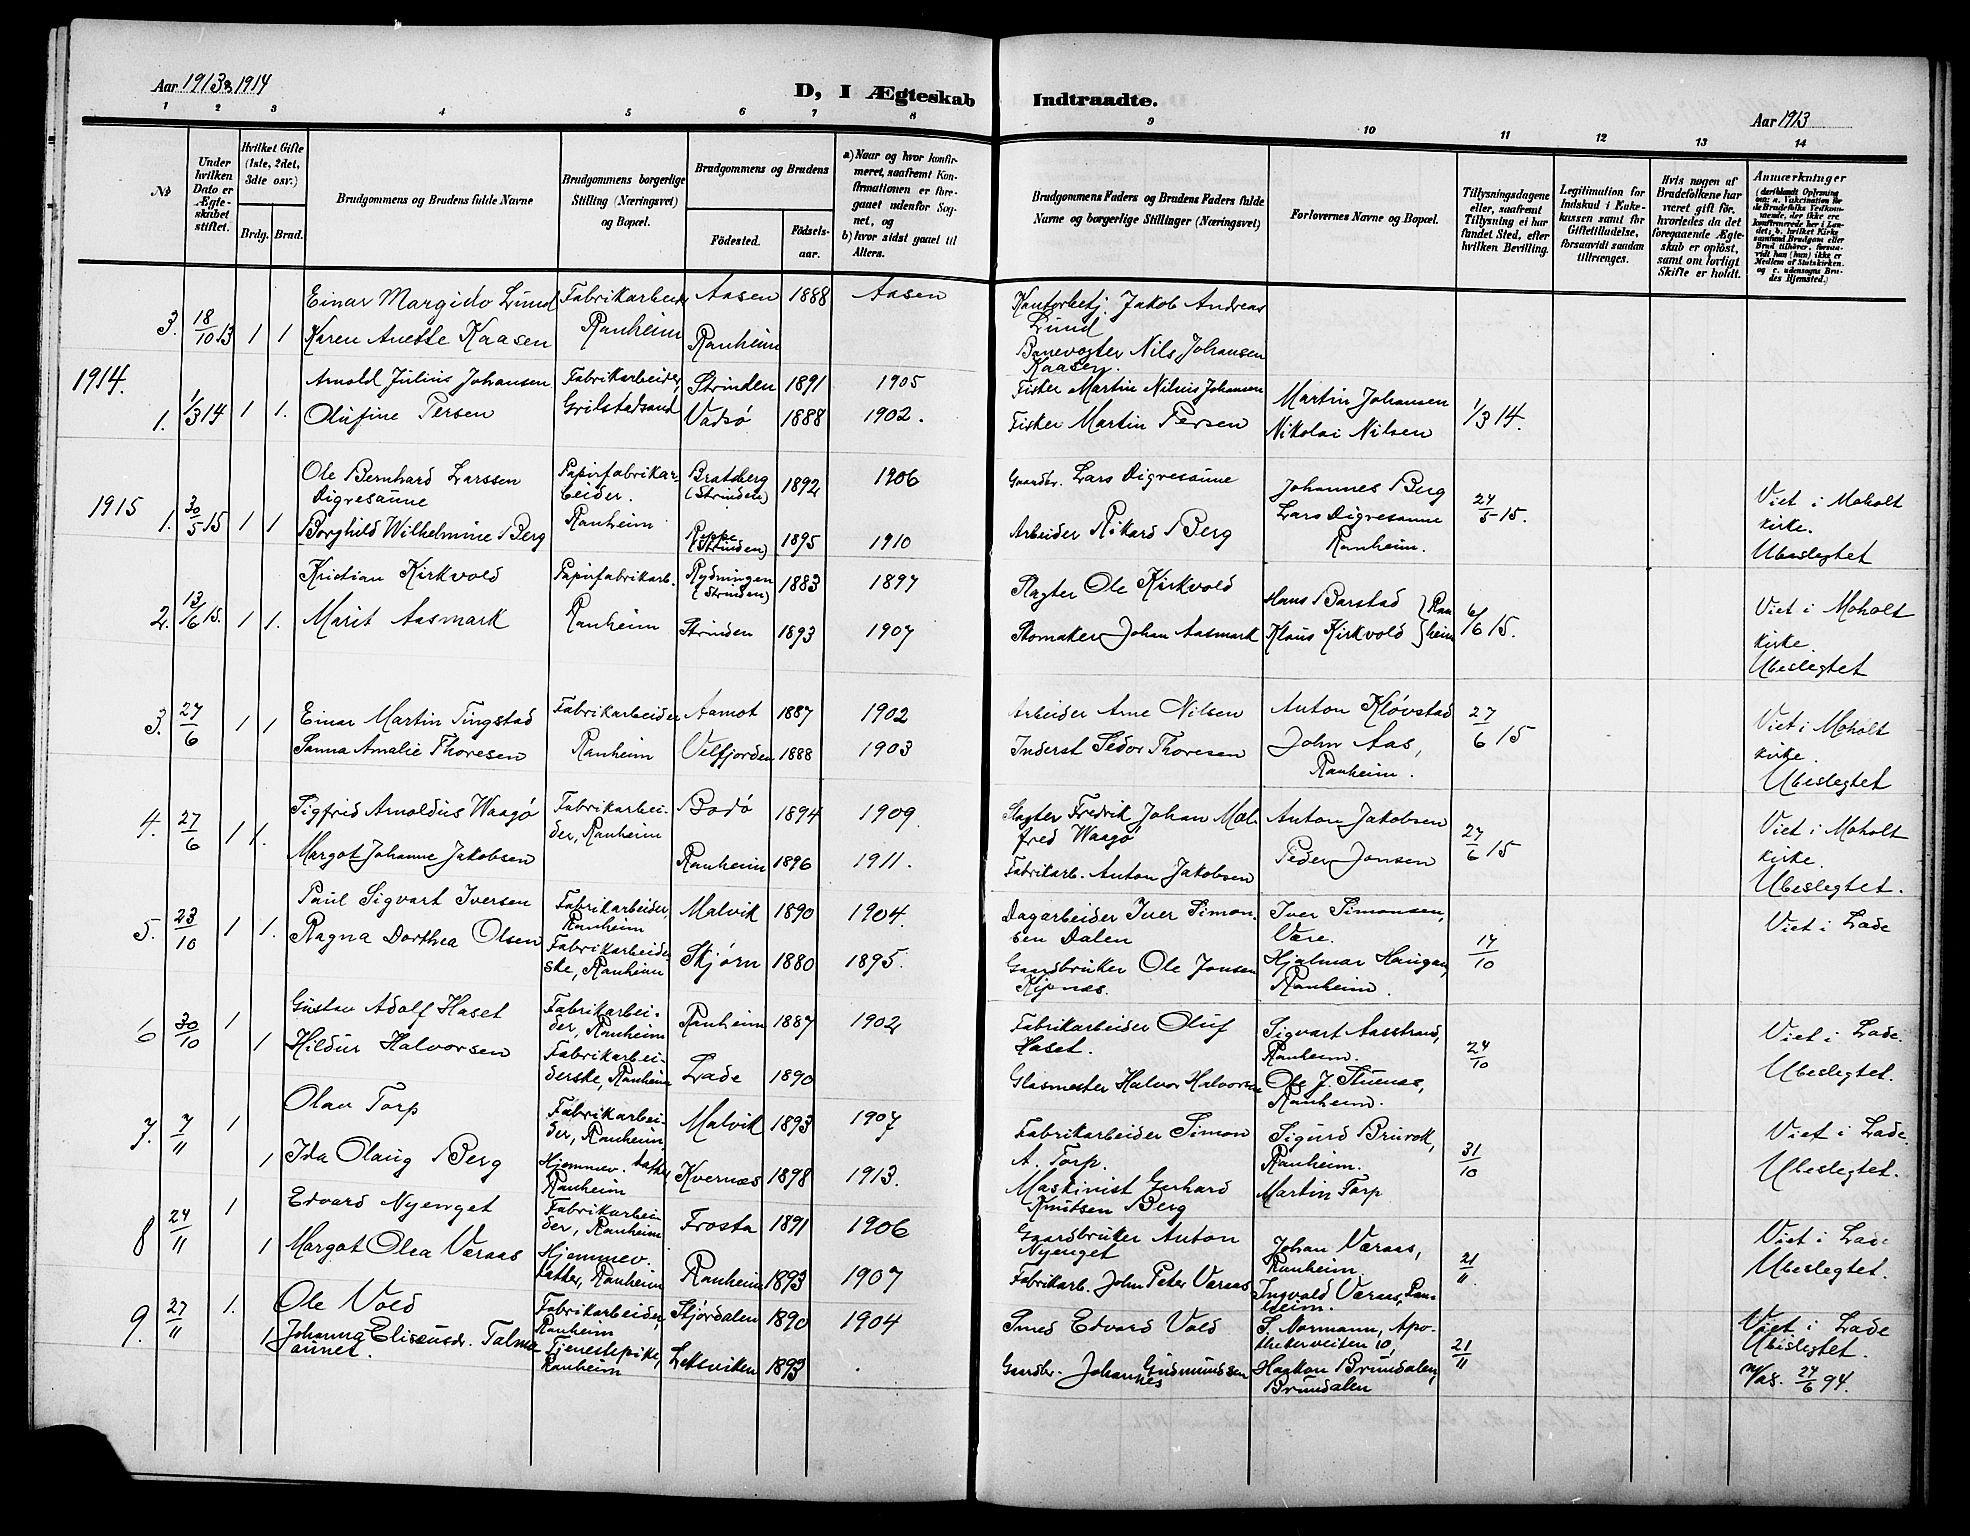 Aar 1913 & 1914
D, I Ægteskab Indtraadte.
Aar 1913
1 2 3 4 5 6 7 8 9 10 11 12 13 14
No
Under hvilken Dato er Ægteskabet stiftet.
Hvilket Gifte (1ste, 2det, 3die osv.)
Brdg. Brud.
Brudgommens og Brudens fulde Navne
Brudgommens borgerlige Stilling (Næringsvei) og Bopæl.
Brudgommens og Brudens
Fødested. Fødselsaar.
a) Naar og hvor konfirmeret, saafremt Konfirmationen er foregaaet udenfor Sognet, og
b) hvor sidst gaaet til Alters.
Brudgommens Faders og Brudens Faders fulde Navne og borgerlige Stillinger (Næringsvei)
Forlovernes Navne og Bopæl.
Tillysningsdagene eller, saafremt Tillysning ei har fundet Sted, efter hvilken Bevilling.
Legitimation for Indskud i Enkekassen samt for Giftetilladelse, forsaavidt saadan tiltrænges.
Hvis nogen af Brudefolkene har været gift før, hvorledes da det foregaaende Ægteskab er opløst, samt om lovligt Skifte er holdt.
Anmærkninger
(deriblandt Oplysning om: a. Vakcination for de Brudefolks Vedkommende, der ikke ere konfirmerede her i Landet; b. hvilket Kirkesamfund Brudgom eller Brud tilhører, forsaavidt han (hun) ikke er Medlem af Statskirken, og c. udensogns Brudes Hjemsted.)
3. 18/10 13 1 1 Einar Margido Lund Fabrikarbeider Aasen 1888 Aasen Kontorbetj. Jakob Andreas Lund
Karen Anette Kaasen Ranheim Ranheim Banevogter Nils Johansen Kaasen.
1914.
1. 1/3 14 1 1. Arnold Julius Johansen Fabrikarbeider, Strinden 1891 1905 Fisker Martin Nilius Johansen Martin Johansen 1/3 14.
Olufine Persen Grilstadsand Vadsø 1888 1902. Fisker Martin Persen Nikolai Nilsen
1915
1. 30/5 15 1 1 Ole Bernhard Larssen Digresaune Papirfabrikarbeider. Bratsberg (Strinden) 1892 1906 Gaardbr. Lars Digresaune Johannes Berg 24/5 15. Viet i Moholt kirke.
Borghild Wilhelmine Berg Ranheim Reppe (Strinden) 1895 1910 Arbeider Rikard Berg Lars Digresaune Ranheim. Ubeslegtet
2. 13/6 15. 1 1. Kristian Kirkvold Papirfabrikarb. Rydningen (Strinden) 1883 1897 Slagter Ole Kirkvold Hans Barstad } Ran 6/6 15. Viet i Moholt kirke.
Marit Aasmark Ranheim Strinden 1893 1907 Skomaker Johan Aasmark Klaus Kirkvold } heim Ubeslegtet
3. 27/6 1 1 Einar Martin Tingstad Fabrikarbeider Aamot 1887 1902 Arbeider Arne Nilsen Anton Kløvstad 27/6 15 Viet i Moholt kirke.
Sanna Amalie Thoresen Ranheim Velfjorden 1888 1903 Inderst Sedor Thoresen John Aas, Ranheim. Ubeslegtet
4. 27/6 1 1. Sigfrid Arnoldus Waagø Fabrikarbeider, Ranheim Bodø 1894 1909. Slagter Fredrik Johan Walfred Waagø Anton Jakobsen 27/6 15 Viet i Moholt kirke.
Margot Johanne Jakobsen Ranheim 1896 1911. Fabrikarb. Anton Jakobsen Peder Jonsen Ubeslegtet.
5. 23/10 1 1. Paul Sigvart Iversen Fabrikarbeider, Ranheim Malvik 1890 1904. Dagarbeider Iver Simonsen Dalen Iver Simonsen, Være. 17/10 Viet i Lade
Ragna Dorthea Olsen Fabrikarbeiderske, Ranheim Skjørn 1880 1895. Gaardbruker Ole Jonsen Hjalmar Haugan, Ranheim.
6 30/10 1 1 Gustav Adolf Haset Fabrikarbeider, Ranheim Ranheim 1887 1902 Fabrikarbeider Oluf Haset. Sigvart Aasstrand, Ranheim. 24/10 Viet i Lade.
Hildur Halvorsen Fabrikarbeiderske, Ranheim Lade 1890 Glasmester Halvor Halvorsen Ole J. Stuenæs, Ranheim. Ubeslegtet.
7. 7/11 1 1 Olav Torp Fabrikarbeider, Ranheim, Malvik 1893 1907 Fabrikarbeider Simon A. Torp. Sigurd Bruvok, Ranheim. 31/10 Viet i Lade.
Ida Olaug Berg Hjemmev. datter, Ranheim Kvernæs 1898 1913. Maskinist Gerhard Knutsen Berg Martin Torp Ubeslegtet.
8 24/11 1 1 Edvard Nyenget Fabrikarbeider, Ranheim Frosta 1891 1906 Gaardbruker Anton Nyenget Johan Væraas, Ranheim. 21/11. Viet i Lade
Margot Olea Væraas Hjemmev. datter, Ranheim Ranheim 1893 1907 Fabrikarb. John Peter Væraas Ingvald Væraas, Ranheim. Ubeslegtet.
9. 27/11 1. 1 Ole Vold Fabrikarbeider, Ranheim Stjørdalen 1890 1904 Smed Edvard Vold S. Normann, Apothekerveiten 10, 21/11 Viet i Lade Ubislegtet.
Johanna Eliseusdr. Talmo Saunet. Tjenestepike, Ranheim Leksviken 1893 . Gaardbr. Johannes Gudmundssen Haakon Brundalen, Brundalen 27/6 94.